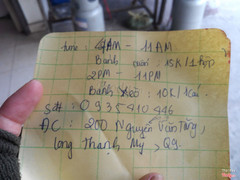 time: 4AM - 11AM
Bánh cuốn: 15k/1 hộp
2PM - 11PM
Bánh xèo: 10k/1 cái.
Sđt: 0935410446
ĐC: 200 Nguyễn Văn Tăng,
Long Thạnh Mỹ, Q9.